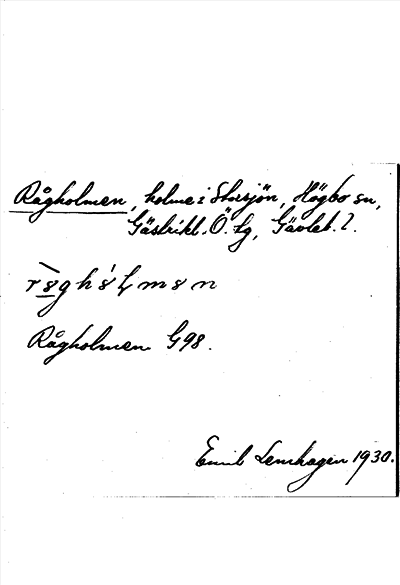 Rågholmen, holme i Storsjön, Högbo sn,
Gästrikl. Ö. tg, Gävleb. l.
Rågholmen G98.
Emil Lenhagen 1930.